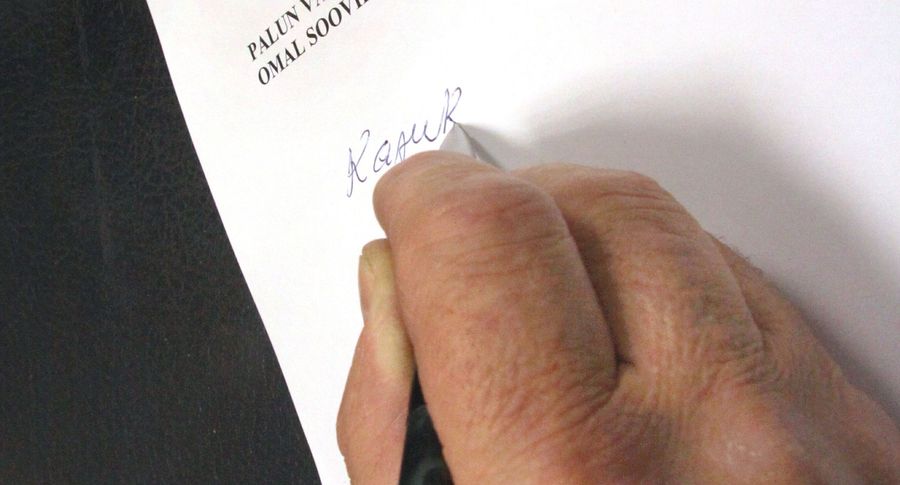 PALUN VA
OMAL SOOVI
Kasuk